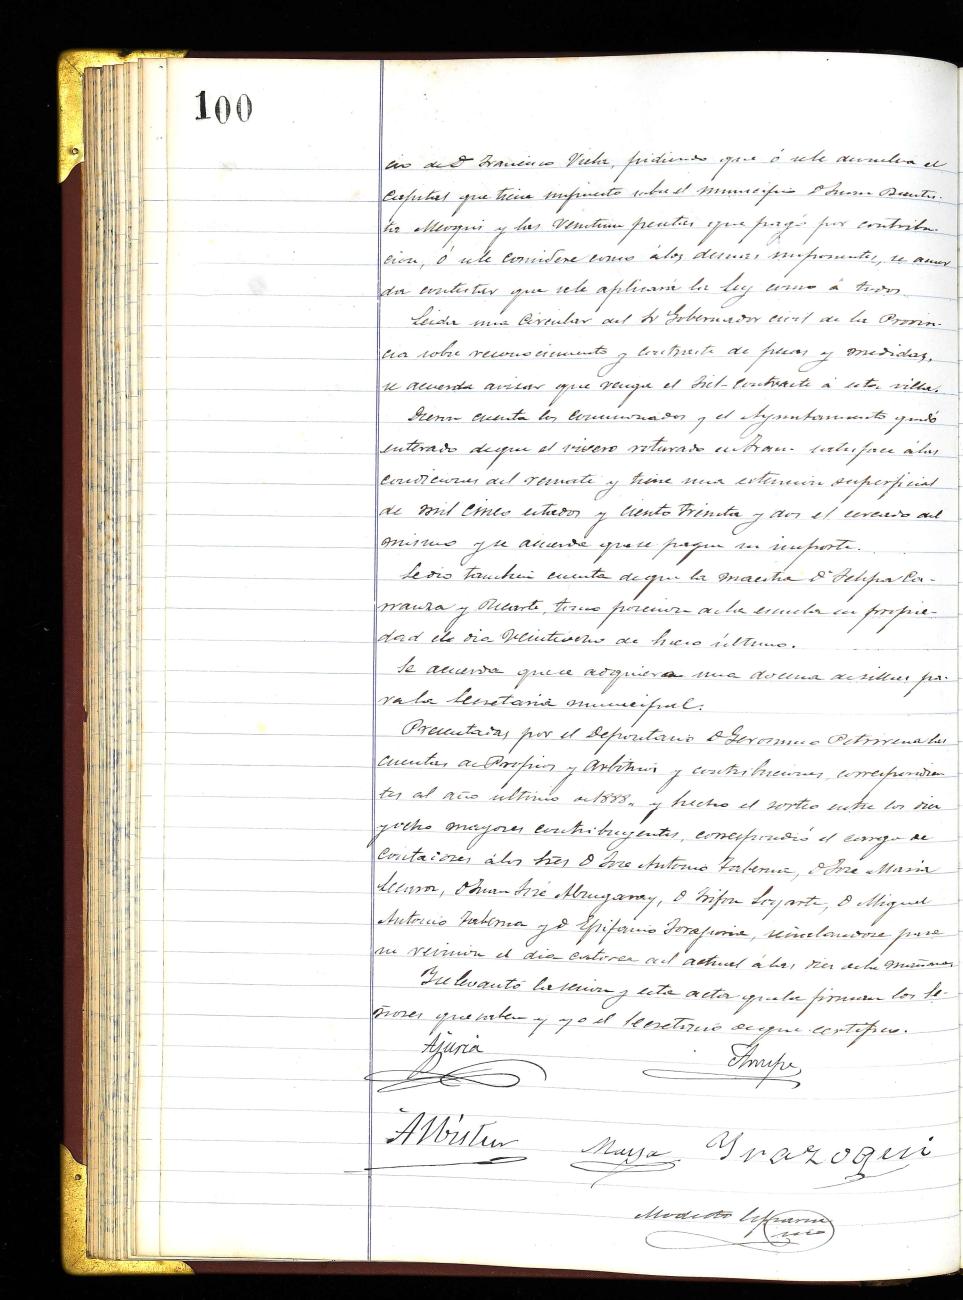 100
cio de Dn Francisco Viela, pidiendo que ó se le devuelva el
Capital que tiene impuesto sobre el municipio Dn Juan Bautis-
ta Meoqui y las Veintiuna pesetas que pagó por contribu-
cion, ó se le considere como á los demas imponentes, se acuer
da contestar que se le aplicará la Ley como á todos.
Leida una Circular del Sr Gobernador civil de la Provin-
cia sobre reconocimiento y contraste de pesas y medidas,
se acuerda avisar que venga el Fiel-Contraste á esta villa.
Dieron cuenta los Comisionados y el Ayuntamiento quedó
enterado de que el vivero roturado en satisface á las
condiciones del remate y tiene una extension superficial
de mil cinco estados y ciento treinta y dos el cercado del
mismo y se acuerda que se pague su importe.
Se dió tambien cuenta de que la maestra Da Felipa Ca-
rranza y tomó posesion de la escuela en propie-
dad el dia Veintiocho de Enero último.
Se acuerda que se adquiera una docena de sillas pa-
ra la Secretaria municipal.
Presentadas por el Depositario Dn Geronimo Petrirena las
cuentas de Propios y Arbitrios y contribuciones, correspondien
tes al año ultimo de 1888, y hecho el sorteo entre los diez
y ocho mayores contribuyentes, correspondió el cargo de
Contadores á los Sres Dn Jose Antonio Taberna, Dn Jose Maria
Dn Juan José Dn Trifon Dn Miguel
Antonio Taberna y Dn Epifanio señalandose para
su reunion el dia catorce del actual á las diez de la mañana
Y se levantó la sesion y esta acta que la firman los Se-
ñores que saben y yo el Secretario de que certifico.
Ajuria
Arrupe
Albistur Maysa Yrazoqui
Modesto